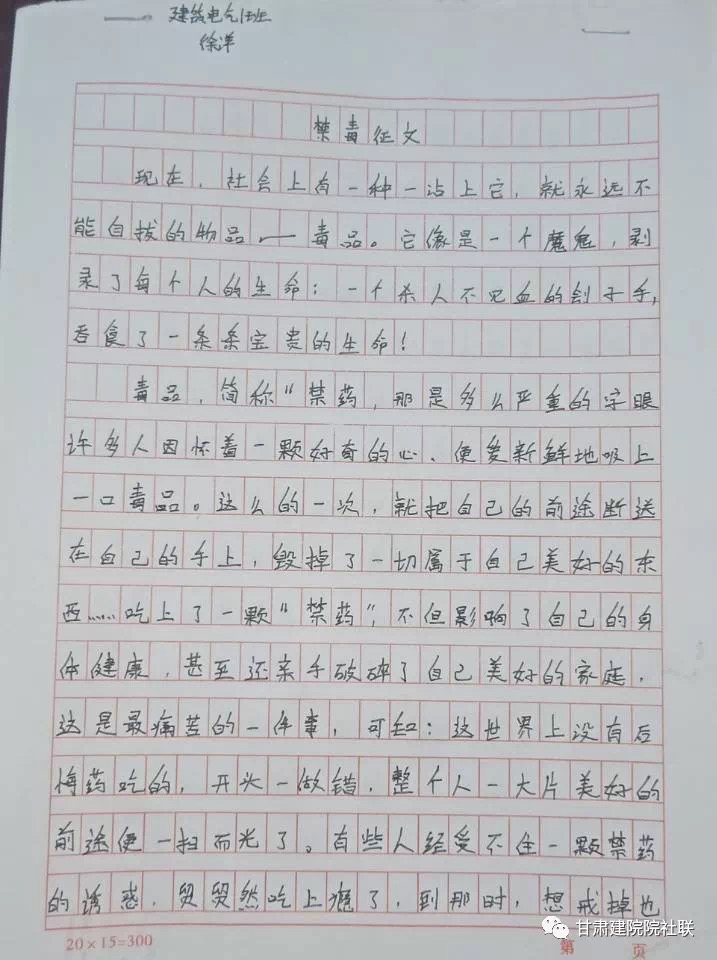 建筑电气1班
徐洋
禁毒征文
现在，社会上有一种一沾上它，就永远不
能自拔的物品——毒品。它像是一个魔鬼，剥
录了每个人的生命；一个杀人不见血的刽子手，
吞食了一条条宝贵的生命！
毒品，简称“禁药，那是多么严重的字眼
许多人因怀着一颗好奇的心、便爱新鲜地吸上
一口毒品。这么的一次，就把自己的前途断送
在自己的手上，毁掉了一切属于自己美好的东
西……吃上了一颗“禁药”，不但影响了自己的身
体健康，甚至还亲手破碎了自己美好的家庭．
这是最痛苦的一件事，可知：这世界上没有后
悔药吃的，开头一做错，整个人一大片美好的
前途便一扫而光了。有些人经受不住一颗禁药
的诱惑，贸贸然吃上瘾了，到那时，想戒掉也
20×15=300
第 页
甘肃建院院社联